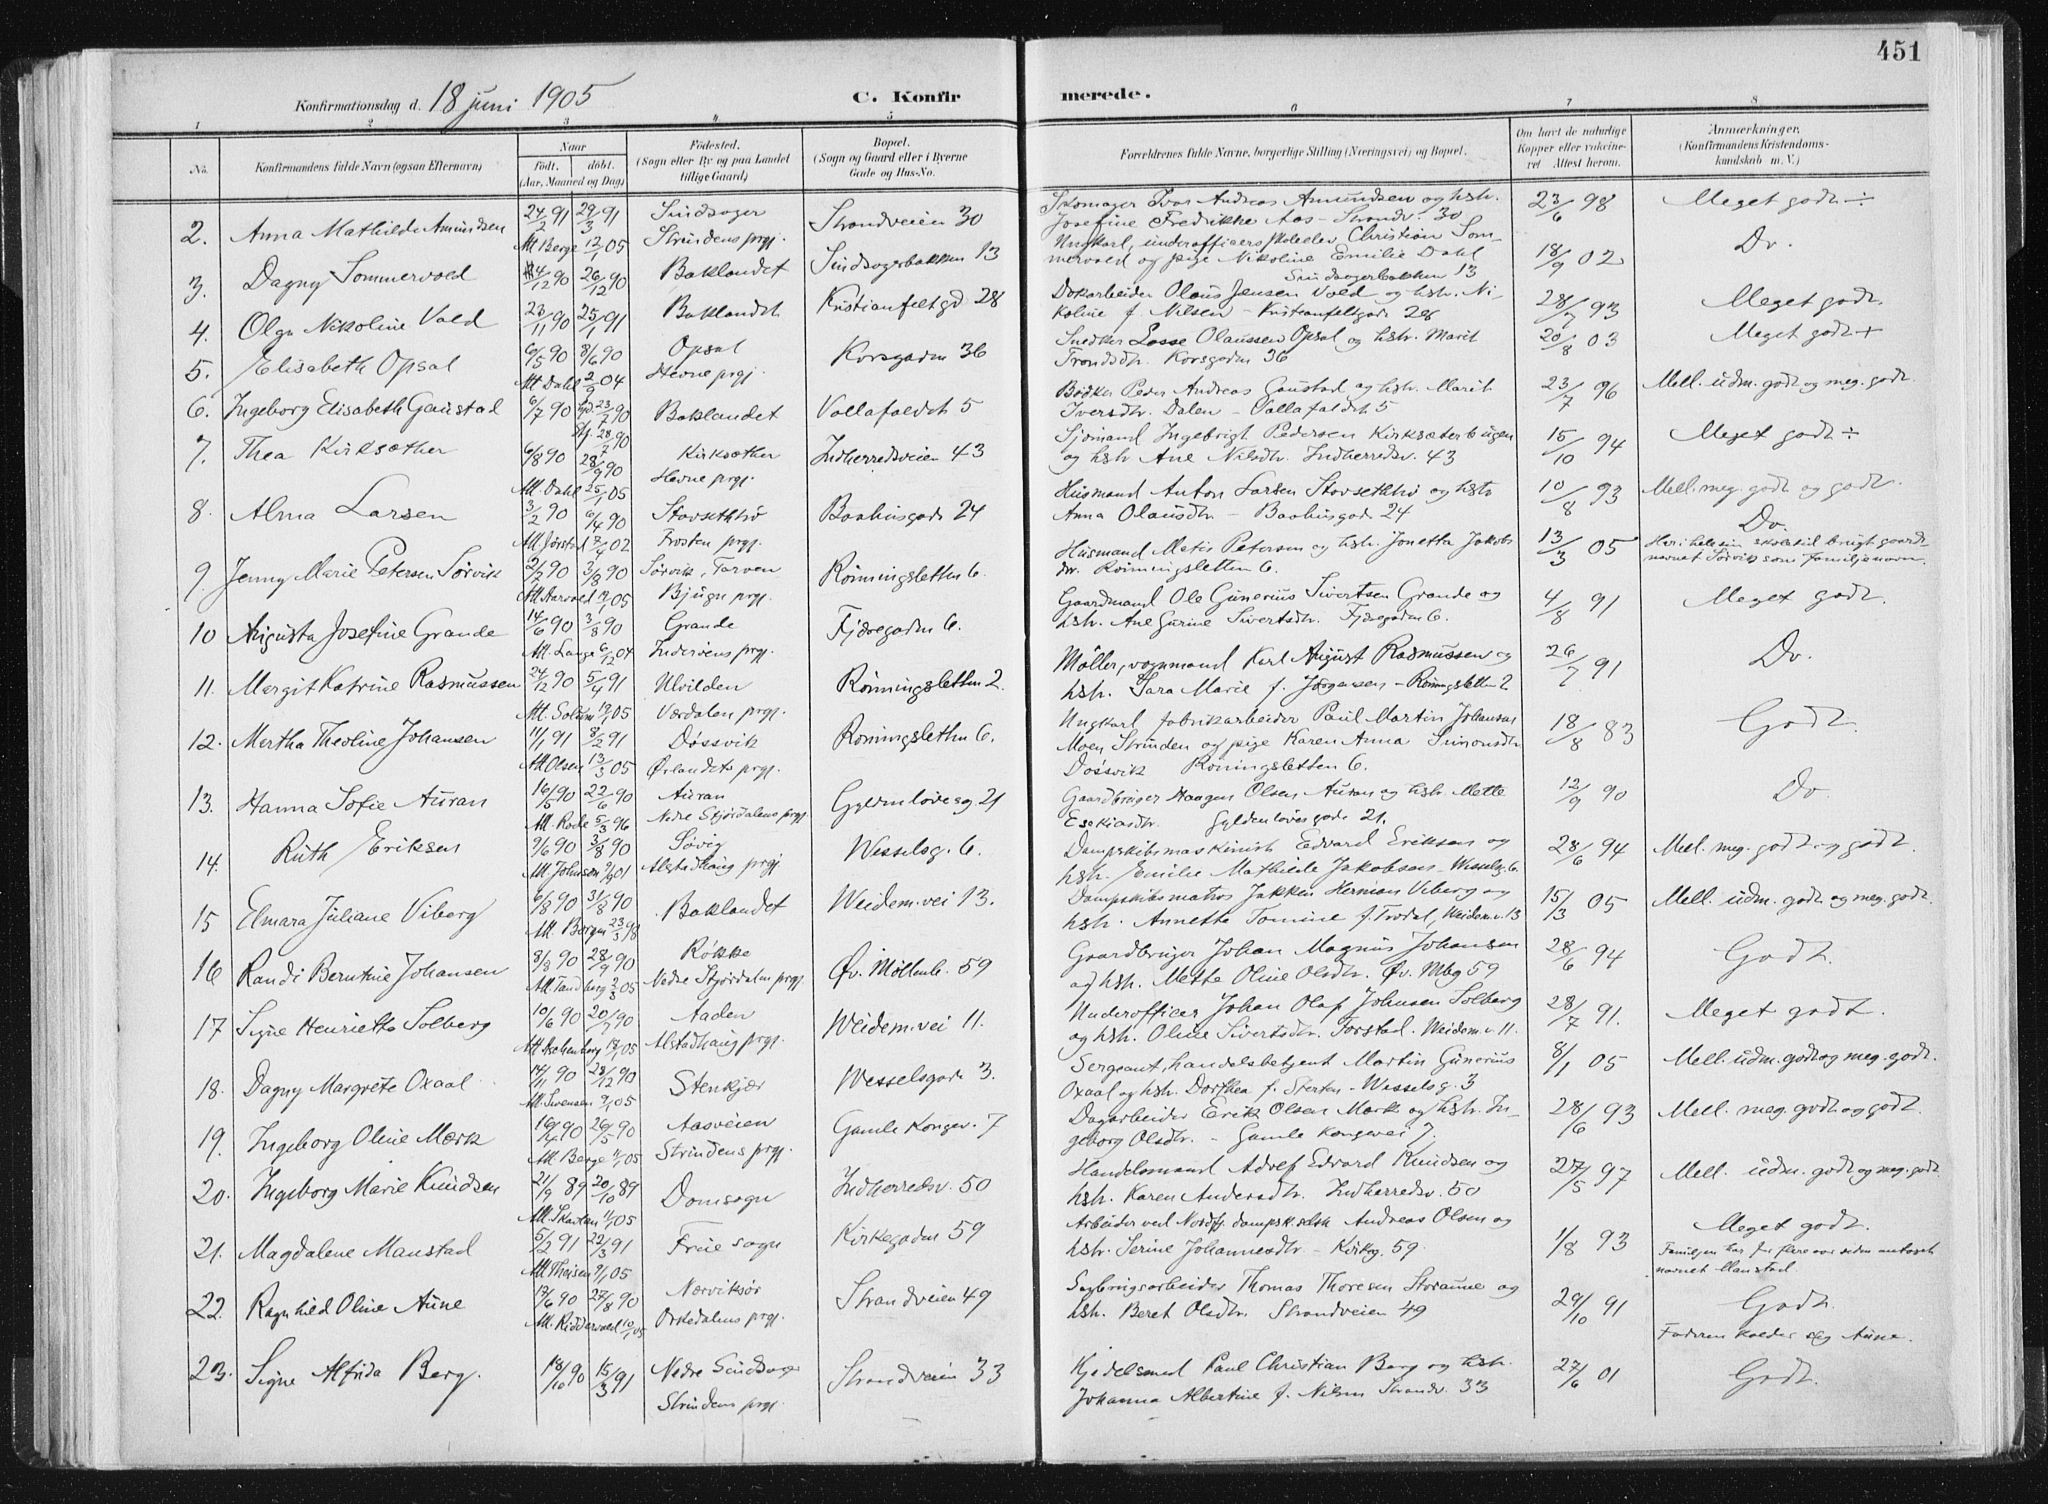 451
Konfirmationsdag d. 18 juni 1905
C. Konfirmerede.
1 2 3 4 5 6 7 8
No. Konfirmandens fulde Navn (ogsaa Efternavn) Naar Født. døbt. (Aar, Maaned og Dag) Fødested. (Sogn eller By og paa Landet tillige Gaard) Bopæl. (Sogn og Gaard eller i Byerne Gade og Hus-No. Forældrenes fulde Navne, borgerlige Stilling (Næringsvei) og Bopæl. Om havt de naturlige Kopper eller vakcineret Attest herom. Anmærkninger. (Konfirmandens Kristendomskundskab m. V.)
2. Anna Mathilde Amundsen 24/2 91 29/3 91 Sindsoger Strandveien 30 Skomager Ivar Andreas Amundsen og hstr. 23/6 98 Meget godt ÷
Att Berge 12/1 05 Strindens prgj. Josefine Fredrikke Aas - Strandv. 30
3. Dagny Sommervold 4/12 90 26/12 90 Baklandet Sindsogerbakken 13 Ungkarl, underofficersskoleelev Christian Som- 18/9 02 Do.
mervold og pige Nikoline Emilie Dahl
Sindsogerbakken 13
4. Olga Nikoline Vold 23/11 90 25/1 91 Baklandet Kristianfeltgd 28 Dokarbeider Olaus Jensen Vold og hstr. Ni- 28/7 93 Meget godt.
koline f. Nilsen - Kristianfeltgade 28
5. Elisabeth Opsal 6/5 90 8/6 90 Opsal Korsgaden 36 Snedker Lasse Olaussen Opsal og hstr. Marit 20/8 03 Meget godt +
Att Dahl 2/9 04 Hevne prgj. Trondsdtr. Korsgaden 36
6. Ingeborg Elisabeth Gaustad 6/7 90 23/7 90 Baklandet Vollafaldet 5 Bødker Peder Andreas Gaustad og hstr. Marit 23/7 96 Mell. udm. godt og meg. godt.
28/9 90 Iversdtr. Dalen - Vollafaldet 5
7. Thea Kirksæther 6/8 90 28/9 90 Kirksæther Indherredsveien 43 Sjømand Ingebrigt Pedersen Kirksæterbugen 15/10 94 Meget godt ÷
Att. Dahl 25/1 05 Hevne prgj. og hstr Ane Nilsdtr. Indherredsv. 43
8. Alma Larsen 3/2 90 6/4 90 Stovsethtrø Baahusgade 24 Husmand Anton Larsen Stovsethtrø og hstr 10/8 93 Mell. meg. godt og godt.
Att. Jørstad 7/4 02 Frosten prgj. Anna Olausdtr - Baahusgade 24
9. Jenny Marie Petersen Sørvik 2/2 90 3/8 90 Sørvik, Tarven Rønningsletten 6. Husmand Metis Petersen og hstr. Jonetta Jakobs 13/3 05 Do.
Att Aarvold 05 Bjugn prgj. dtr. Rønningsletten 6. navnet Sørvik som Familjenavn.
10 Augusta Josefine Grande 14/6 90 3/8 90 Grande Fjæregaden 6. Gaardmand Ole Gunerius Sivertsen Grande og 4/8 91 Meget godt.
Att. Lange 6/12 04 Inderøens prgj. hstr. Ane Gurine Sivertsdtr. Fjæregaden 6.
11. Margit Katrine Rasmussen 24/12 90 5/4 91 Ulvilden Rønningsletten 2. Møller, vognmand Karl August Rasmussen og 26/7 91 Do.
Att. Solum 19/1 05 Værdalen prgj. hstr. Sara Marie f. Jørgensen - Rønningsletten 2
12. Mertha Theoline Johansen 11/1 91 8/2 91 Døssvik Rønningsletten 6. Ungkarl fabrikarbeider Paul Martin Johansen 18/8 83 Godt
Att Olsen 13/3 05 Ørlandets prgj. Moen Strinden og pige Karen Anna Simonsdtr
Døssvik Rønningsletten 6.
13. Hanna Sofie Auran 16/5 90 22/6 90 Auran Gyldenløvesg 21 Gaardbruger Haagen Olsen Auran og hstr. Mette 12/9 90 Do.
Att. Rode 5/3 96 Nedre Stjørdalens prgj Esekiasdtr. Gyldenløvesgade 21.
14. Ruth Eriksen 9/6 90 3/8 90 Søvig Wesselsg. 6. Dampskibsmaskinist Edvard Eriksen og 28/6 94 Mell. meg. godt og godt.
Att. Johnsen 9/9 01 Alstadhaug prgj hstr. Emilie Mathilde Jakobsen - Wesselsg. 6.
15 Elmara Juliane Viberg 6/8 90 31/8 90 Baklandet Weidem.vei 13. Dampskibsmatros Jakken Herman Viberg og 15/3 05 Mell. udm. godt og meg. godt.
Att. Borgen 23/3 98 hstr. Annetta Tomine f. Trodal, Weidem.v. 13
16 Randi Berntine Johansen 8/8 90 28/9 90 Røkke Øv. Møllenb. 59 Gaardbruger Johan Magnus Johansen 28/6 94 Godt.
Att Tandberg 2/3 05 Nedre Stjørdalen prgj. og hstr. Mette Oline Olsdtr. Øv. Mbg 59
17 Signe Henriette Solberg 10/6 90 20/7 90 Aaden Weidem.vei 11. Underofficer Johan Olaf Johnsen Solberg 28/7 91. Meget godt.
Att Aschenberg 18/1 05 Alstadhaug prgj. og hstr. Oline Sivertsdtr. Forstad. Weidem.v. 11.
18. Dagny Margrete Oxaal 14/11 90 28/12 90 Stenkjær Wesselsgade 3. Sergeant, handelsbetjent Martin Gunerius 8/1 05 Mell. udm. godt og meg. godt.
Att. Svensen 9/1 05 Oxaal og hstr. Dorthea f. Sterten - Wesselsg. 3
19. Ingeborg Oline Mærk 16/4 90 26/5 90 Aasveien Gamle Kongev. 7 Dagarbeider Erik Olsen Mærk og hstr. In- 28/6 93 Mell. meg. godt og godt.
Att Berge 11/1 05 Strindens prgj. geborg Olsdtr. - Gamle Kongevei 7.
20. Ingeborg Marie Knudsen 21/9 89 20/10 89 Domsogn Indherredsv. 50 Handelsmand Adolf Edvard Knudsen og 27/5 97 Mell. udm. godt og meg. godt
Att. Skavlan 11/1 05 hstr. Karen Andersdtr. Indherredsv. 50
21. Magdalene Manstad 5/2 91 22/3 91 Frue sogn Kirkegaden 59 Arbeider ved Nordfj. dampsk.selsk Andreas Olsen og 1/8 93 Meget godt.
Att Theisen 9/1 05 hstr. Serine Johannesdtr - Kirkg. 59. Familjen har for flere aar siden antaget
navnet Manstad
22. Ragnhild Oline Aune 17/6 90 27/8 90 Nærviksør Strandveien 49 Sagbrugsarbeider Thomas Thoresen Storaune og 29/10 91 Godt.
Att. Ridderwold 10/1 05 Orkedalens prgj. hstr. Beret Olsdtr. Strandveien 49 Faderen kalder sig Aune.
23. Signe Alfrida Berg. 18/10 90 15/3 91 Nedre Sindsager Strandveien 33 Kjedelsmed Paul Christian Berg og hstr. 27/6 01 Godt.
Strindens prgj. Johanna Albertine f. Nilsen Strandv. 33